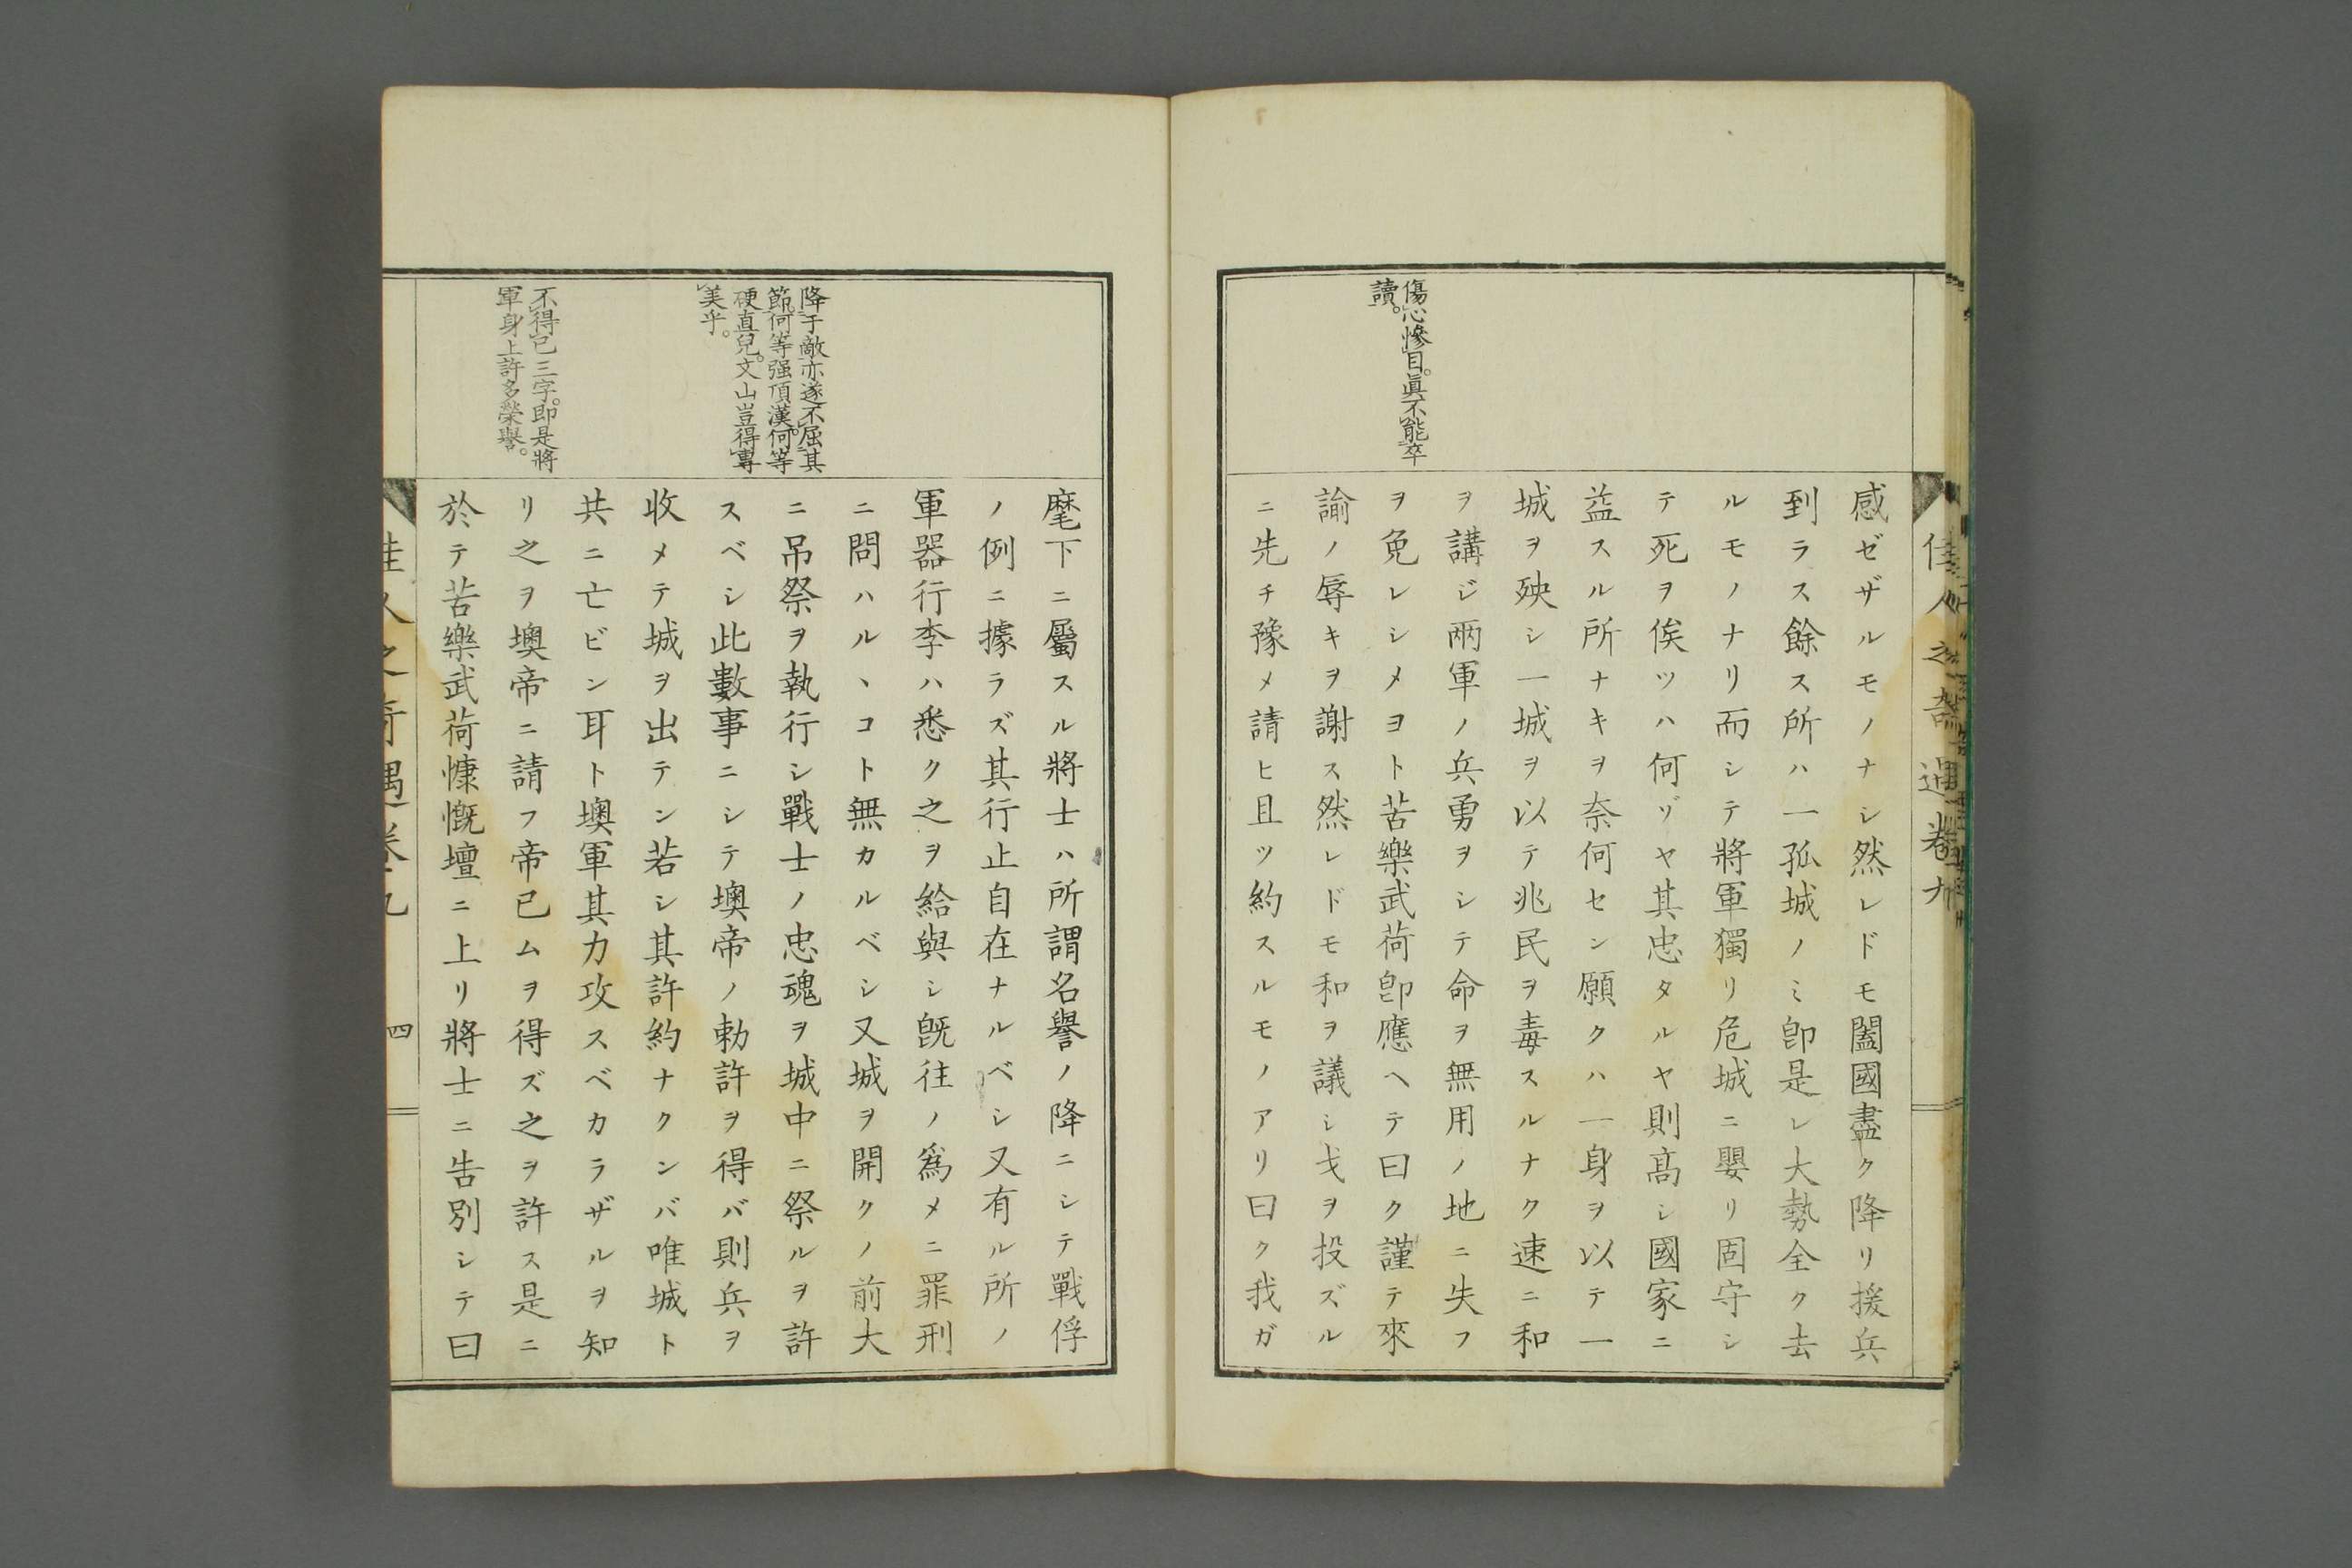 佳人之奇遇卷九
傷心慘目。眞不能卒
讀。
感ゼザルモノナシ然レドモ闔國盡ク降リ援兵
到ラス餘ス所ハ一孤城ノミ卽是レ大勢全ク去
ルモノナリ而シテ將軍獨リ危城ニ嬰リ固守シ
テ死ヲ俟ツハ何ゾヤ其忠タルヤ則高シ國家ニ
益スル所ナキヲ奈何セン願クハ一身ヲ以テ一
城ヲ殃シ一城ヲ以テ兆民ヲ毒スルナク速ニ和
ヲ講ジ兩軍ノ兵勇ヲシテ命ヲ無用ノ地ニ失フ
ヲ免レシメヨト苦樂武荷卽應ヘテ曰ク謹テ來
諭ノ辱キヲ謝ス然レドモ和ヲ議シ戈ヲ投ズル
ニ先チ豫メ請ヒ且ツ約スルモノアリ曰ク我ガ
降于敵亦遂不屈其
節。何等强頂漢。何等
硬直兒。文山豈得專
美乎。
不得已三字。卽是將
軍身上許多榮譽。
麾下ニ屬スル將士ハ所謂名譽ノ降ニシテ戰俘
ノ例ニ據ラズ其行止自在ナルベシ又有ル所ノ
軍器行李ハ悉ク之ヲ給與シ旣往ノ爲メニ罪刑
ニ問ハルヽコト無カルベシ又城ヲ開クノ前大
ニ吊祭ヲ執行シ戰士ノ忠魂ヲ城中ニ祭ルヲ許
スベシ此數事ニシテ墺帝ノ勅許ヲ得バ則兵ヲ
收メテ城ヲ出テン若シ其許約ナクンバ唯城ト
共ニ亡ビン耳ト墺軍其力攻スベカラザルヲ知
リ之ヲ墺帝ニ請フ帝已ムヲ得ズ之ヲ許ス是ニ
於テ苦樂武荷慷慨壇ニ上リ將士ニ告別シテ曰
佳人之奇遇卷九
四